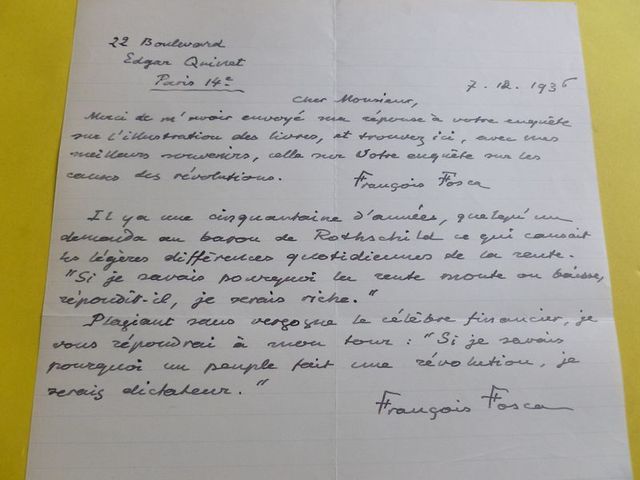 22 Boulevard
Edgar Quinet
Paris 14e
7.12.1936
Cher Monsieur,
Merci de m'avoir envoyé ma réponse à votre enquête
sur l'illustration des livres, et trouvez ici, avec mes
meilleurs souvenirs, celle sur votre enquête sur les
causes des révolutions.
François Fosca
Il y a une cinquantaine d'années, quelqu'un
demanda au baron de Rothschild ce qui causait
les légères différences quotidiennes de la rente.
"Si je savais pourquoi la rente monte ou baisse,
répondit-il, je serais riche."
Plagiant sans vergogne le célèbre financier, je
vous répondrai à mon tour : "Si je savais
pourquoi un peuple fait une révolution, je
serais dictateur."
François Fosca